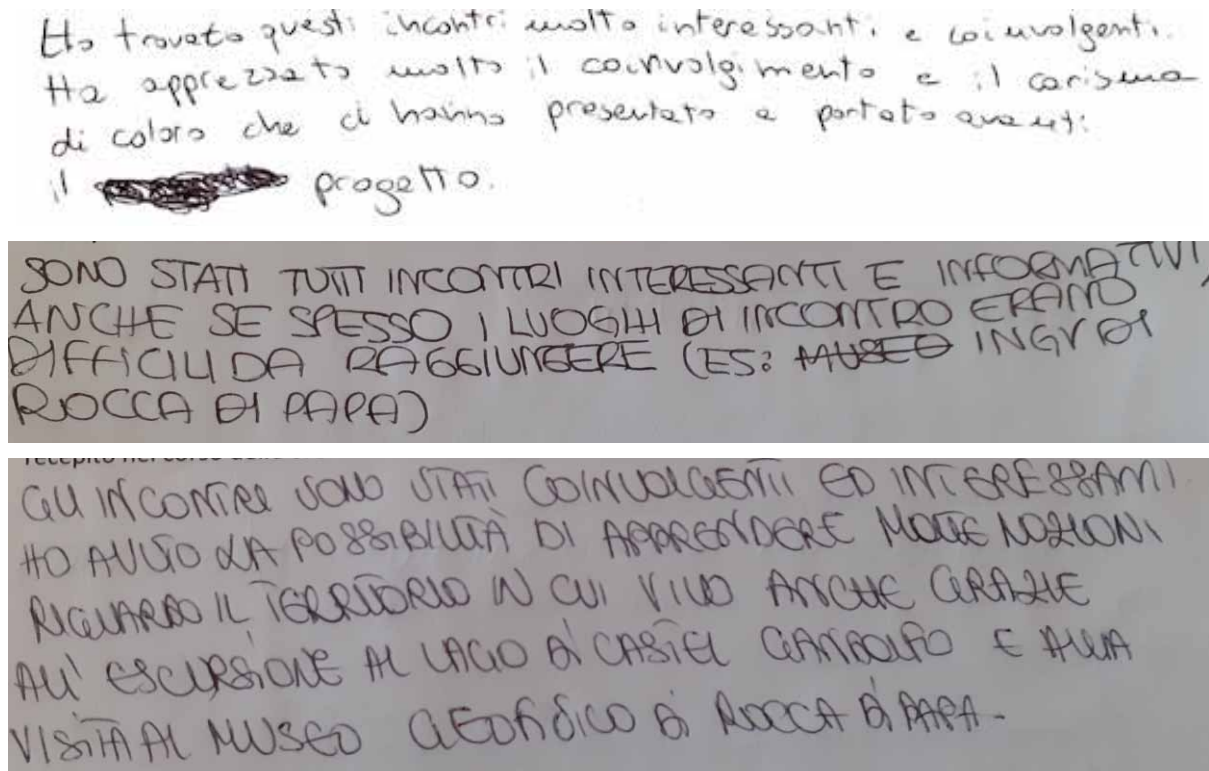 Ho trovato questi incontri molto interessanti e coinvolgenti.
Ho apprezzato molto il coinvolgimento e il carisma
di coloro che ci hanno presentato e portato avanti
il progetto.
SONO STATI TUTTI INCONTRI INTERESSANTI E INFORMATIVI,
ANCHE SE SPESSO I LUOGHI DI INCONTRO ERANO
DIFFICILI DA RAGGIUNGERE (ES: MUSEO INGV DI
ROCCA DI PAPA)
GLI INCONTRI SONO STATI COINVOLGENTI ED INTERESSANTI.
HO AVUTO LA POSSIBILITÀ DI APPRENDERE MOLTE NOZIONI
RIGUARDO IL TERRITORIO IN CUI VIVO ANCHE GRAZIE
ALL'ESCURSIONE AL LAGO DI CASTEL GANDOLFO E ALLA
VISITA AL MUSEO GEOFISICO DI ROCCA DI PAPA.